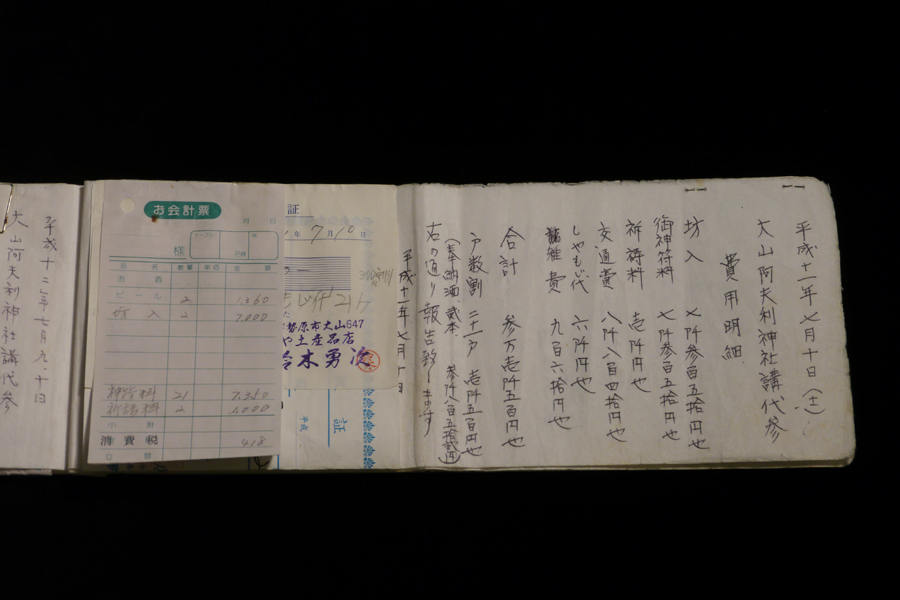 平成十一年七月十日(土)
大山阿夫利神社講代参
費用明細
坊入 七阡参百五拾円也
御神符料 七阡参百五拾円也
祈祷料 壱阡円也
交通費 八阡八百四拾円也
しやもじ代 六阡円也
雑費 九百六拾円也
合計 参万壱阡五百円也
戸数割 二十一戸 壱阡五百円也
(奉納酒 貳本 参阡八百五拾貳円)
右の通り報告致します
平成十一年七月十日
証
年 7月10日
勢原市大山647
や土産品店
鈴木勇次
証
平成
お会計票
月 日
様
品名 数量 単価 金額
お酒
ビール 2 1,360
坊入 2 7,000
神符料 21 7,350
祈祷料 2 1,000
小計
消費税 418
合計
平成十二年七月九、十日
大山阿夫利神社講代参